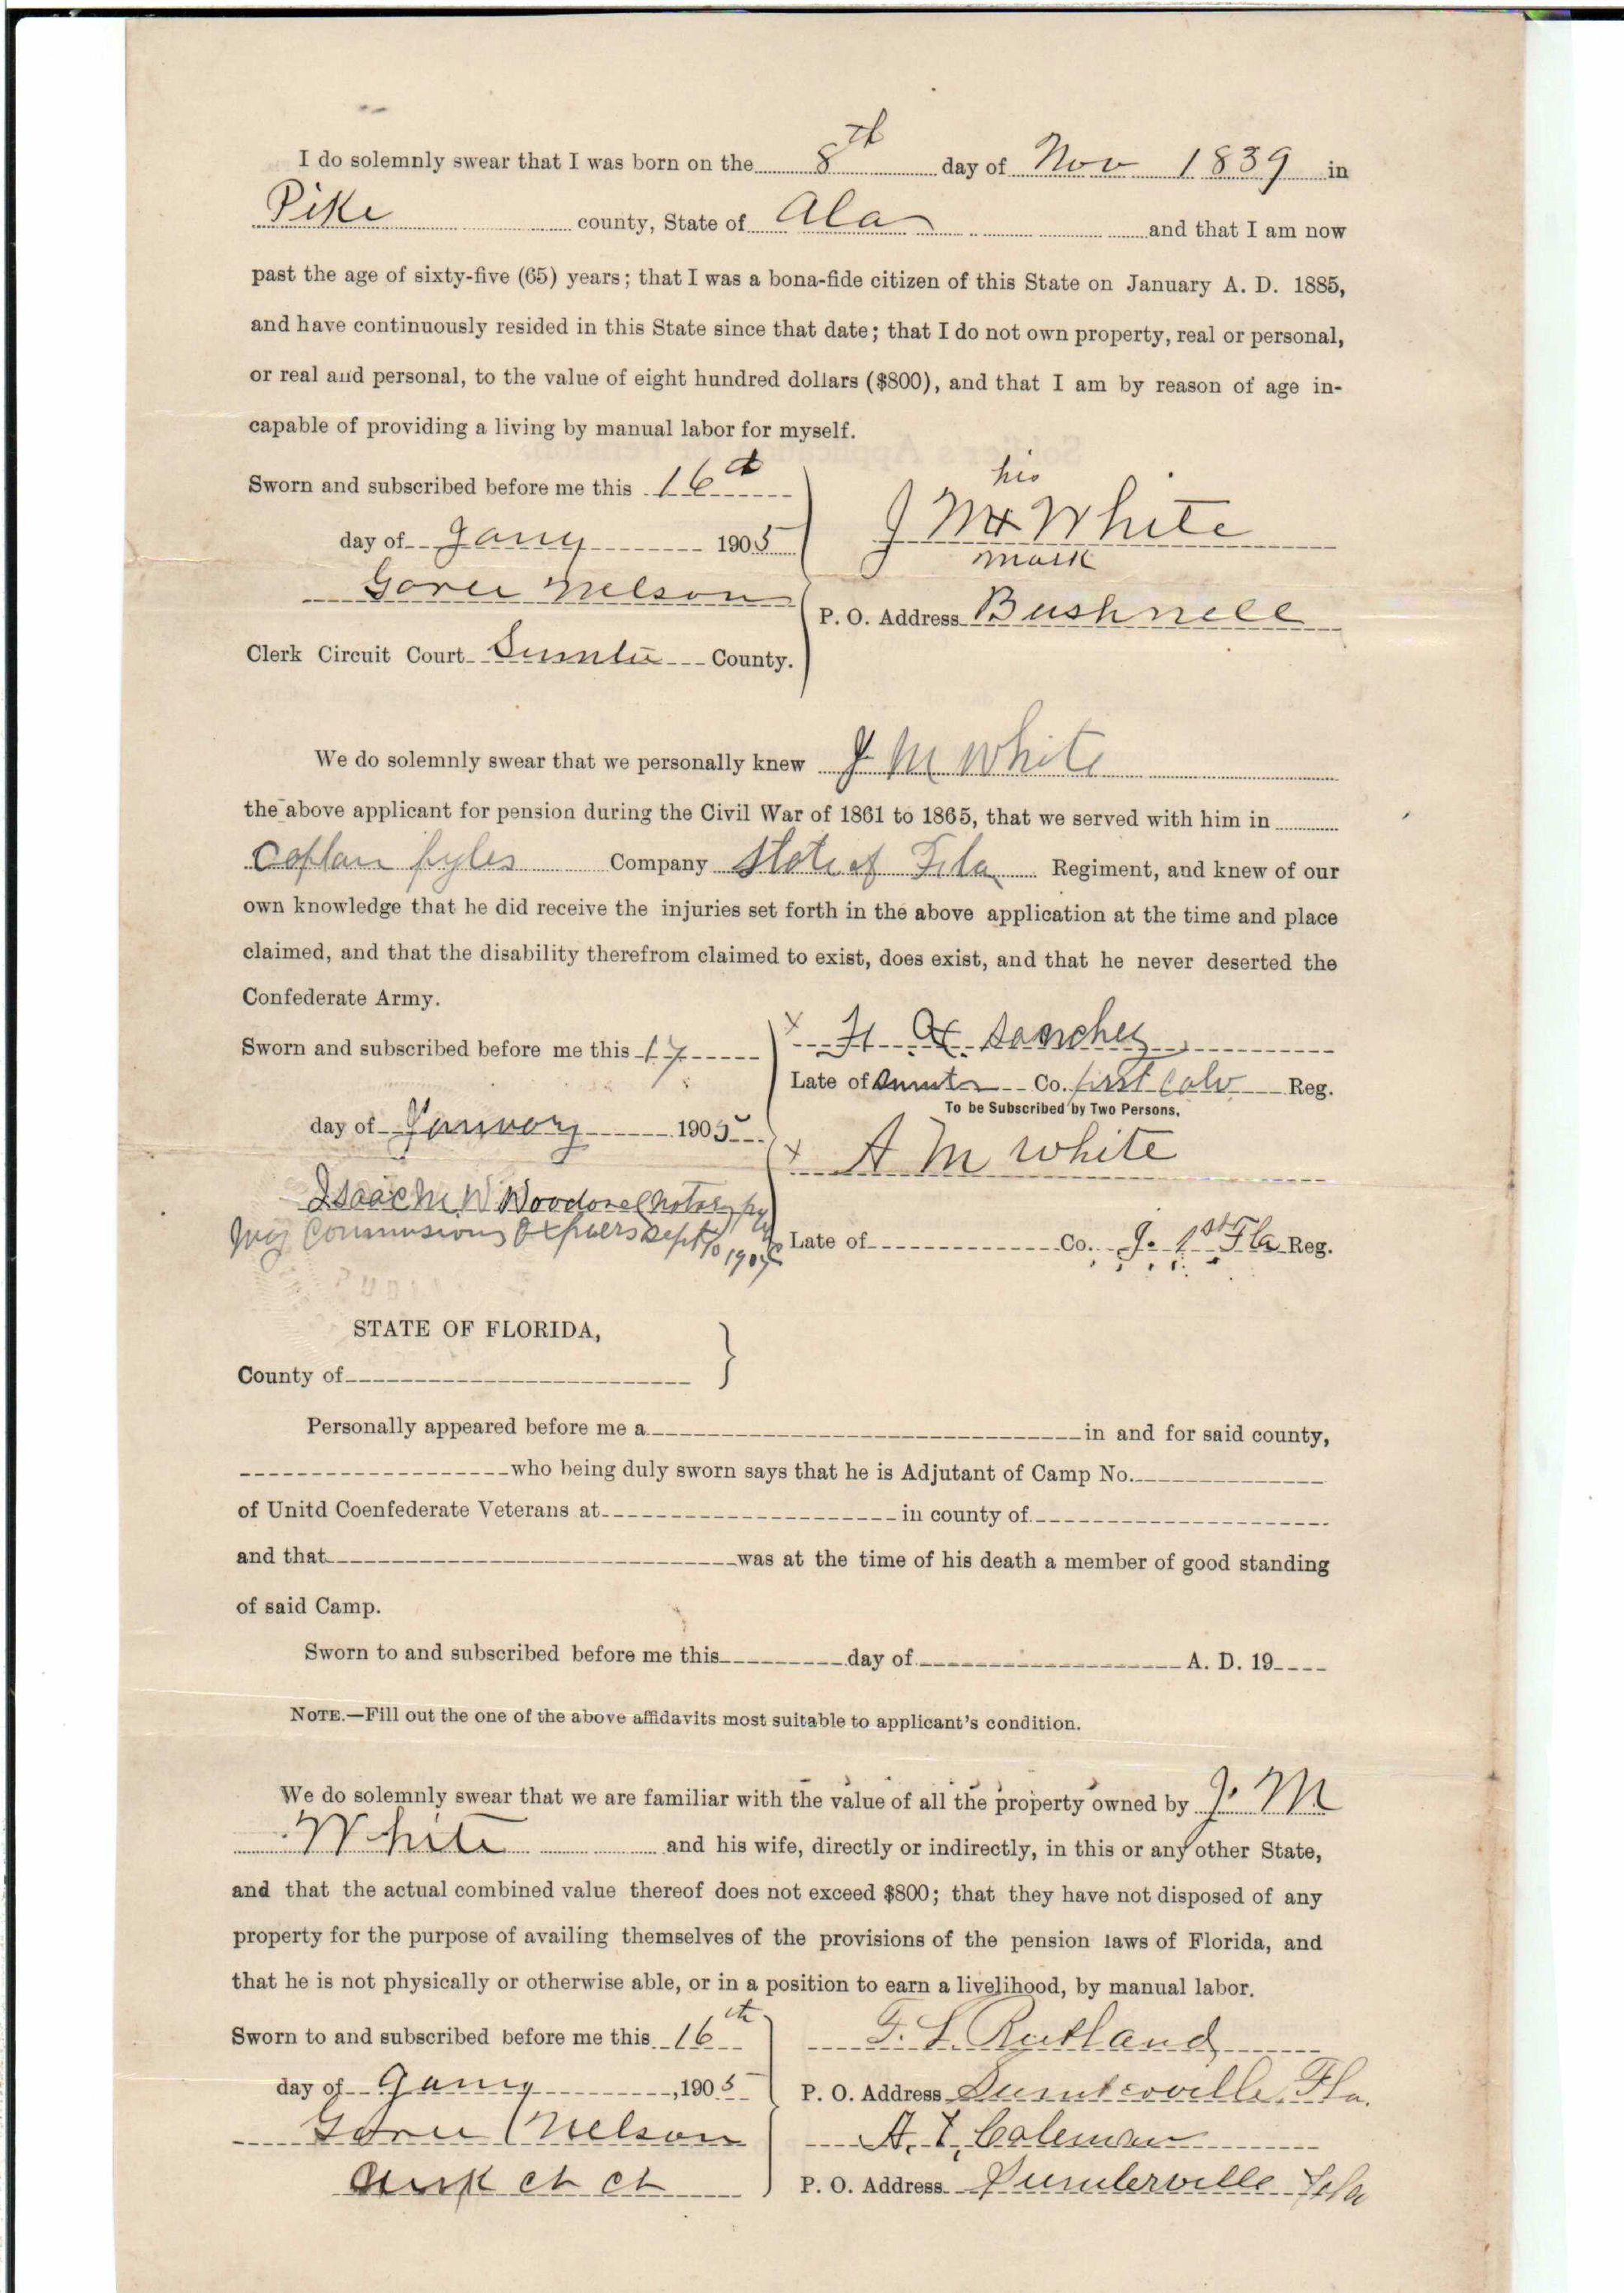 I do solemnly swear that I was born on the 8th day of Nov 1839 in
Pike county, State of Ala and that I am now
past the age of sixty-five (65) years; that I was a bona-fide citizen of this State on January A. D. 1885,
and have continuously resided in this State since that date; that I do not own property, real or personal,
or real and personal, to the value of eight hundred dollars ($800), and that I am by reason of age in-
capable of providing a living by manual labor for myself.
Sworn and subscribed before me this 16th
day of Jany 1905
Nelson
Clerk Circuit Court Sumter County.
his
J M x White
mark
P. O. Address Bushnell
We do solemnly swear that we personally knew J M White
the above applicant for pension during the Civil War of 1861 to 1865, that we served with him in
Coptan pyles Company State of Fla Regiment, and knew of our
own knowledge that he did receive the injuries set forth in the above application at the time and place
claimed, and that the disability therefrom claimed to exist, does exist, and that he never deserted the
Confederate Army.
Sworn and subscribed before me this 17
day of January 1905
Isaac M. W
My Commission Expiers Sept 10
x H Sanchez
Late of Sumter Co. first Calv Reg.
To be Subscribed by Two Persons.
x A M White
Late of Co. J. 1st Fla Reg.
STATE OF FLORIDA,
County of
Personally appeared before me a in and for said county,
who being duly sworn says that he is Adjutant of Camp No.
of Unitd Coenfederate Veterans at in county of
and that was at the time of his death a member of good standing
of said Camp.
Sworn to and subscribed before me this day of A. D. 19
NOTE.—Fill out the one of the above affidavits most suitable to applicant's condition.
We do solemnly swear that we are familiar with the value of all the property owned by J. M
White and his wife, directly or indirectly, in this or any other State,
and that the actual combined value thereof does not exceed $800; that they have not disposed of any
property for the purpose of availing themselves of the provisions of the pension laws of Florida, and
that he is not physically or otherwise able, or in a position to earn a livelihood, by manual labor.
Sworn to and subscribed before me this 16th
day of Jany, 1905
Nelson
Clerk Ct Ct
F. L. Rutland
P. O. Address Sumterville, Fla.
A. T. Coleman
P. O. Address Sumterville Fla